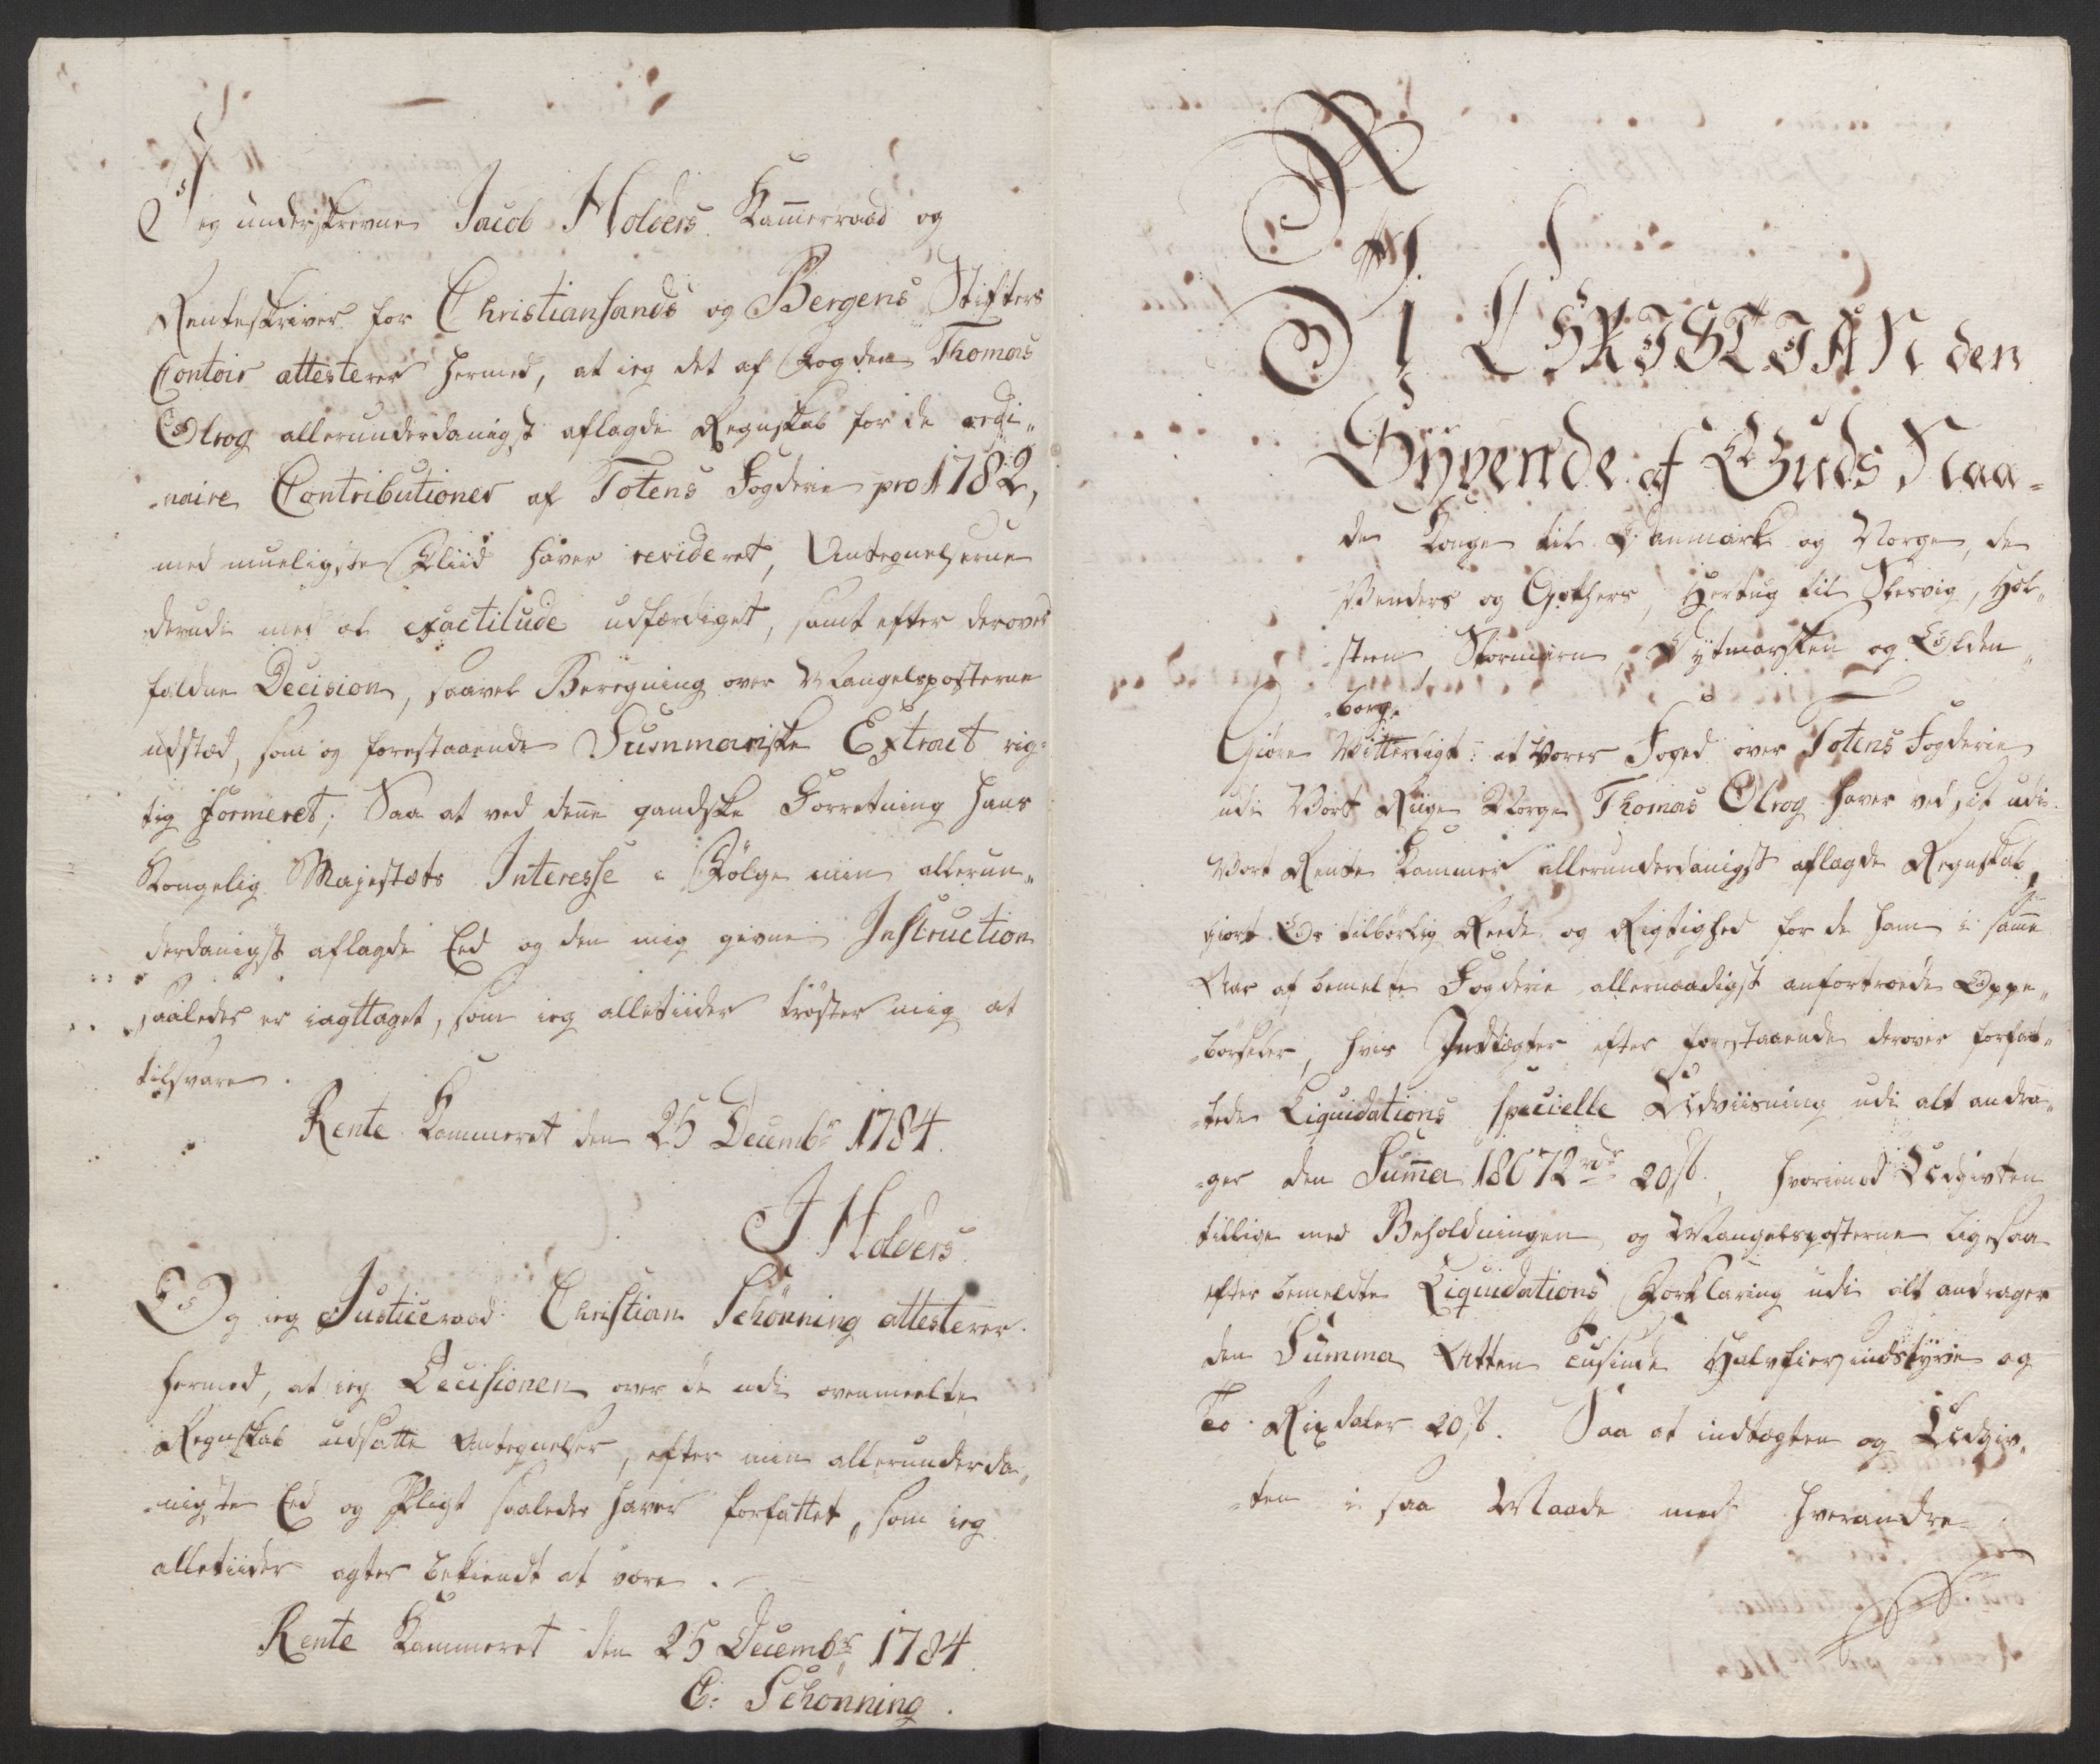 Jeg underskrevne Jacob Holders Kammerraad og
Renteskriver for Christiansands og Bergens Stifters
Contoir attesterer hermed, at ieg det af Fogden Thomas
Olrog allerunderdanigst aflagde Regnskab for de ordi„
„naire Contributioner af Totens Fogderie pro 1782,
med mueligste Fliid haver revideret, Antegnelserne
derudi med al exactitude udfærdiget, samt efter derover
faldne Decision, saavel Beregning over Mangelsposterne
udstæd, som og forestaaende Summariske Extract rig„
tig formeret; Saa at ved denne gandske Forretning Hans
Kongelig Majestæts Interesse i Følge min allerun„
derdanigst aflagde Eed og den mig givne Instruction
saaledes er iagttaget, som ieg alletiider trøster mig at
tilsvare.
Rente Kammeret den 25 Decembr 1784.
J Holders.
Og ieg Justiceraad Christian Schönning attesterer
hermed, at ieg Decisionen over de udi ovenmeelte
Regnskab udsatte Antegnelser, efter min allerunderda„
„nigste Eed og Pligt saaledes haver forfattet, som ieg
alletiider agter bekiendt at være.
Rente Kammeret den 25 Decembr 1784.
C: Schönning.
R
Vi CHRISTIAN den
Syvende af Guds Naa„
de Konge til Danmark og Norge, de
Wenders og Gothers, Hertug til Slesvig, Hol„
steen, Stormarn, Dytmarsken og Olden„
„borg.
Giøre Vitterligt: at Vores Foged over Totens Fogderie
udi Vort Riige Norge Thomas Olrog haver ved sit udi
Vort Rente Kammer allerunderdanigst aflagde Regnskab,
giort Os tilbørlig Reede og Rigtighed for de ham i samme
Aar af bemelte Fogderie allernaadigst anfortroede Oppe„
„børseler, hvis Indtægter efter forestaaende derover forfat„
„tede Liquidations specielle Udviisning udi alt andra„
„ger den Summa 18072 rdr 20 s., hvorimod Udgivten
tillige med Beholdningen og Mangelsposterne ligesaa
efter bemeldte Liquidations Forklaring udi alt andrager
den Summa Atten Tusinde Halvfiersindstyve og
To Rixdaler 20 s. Saa at indtægten og Udgiv„
„ten i saa Maade med hverandre